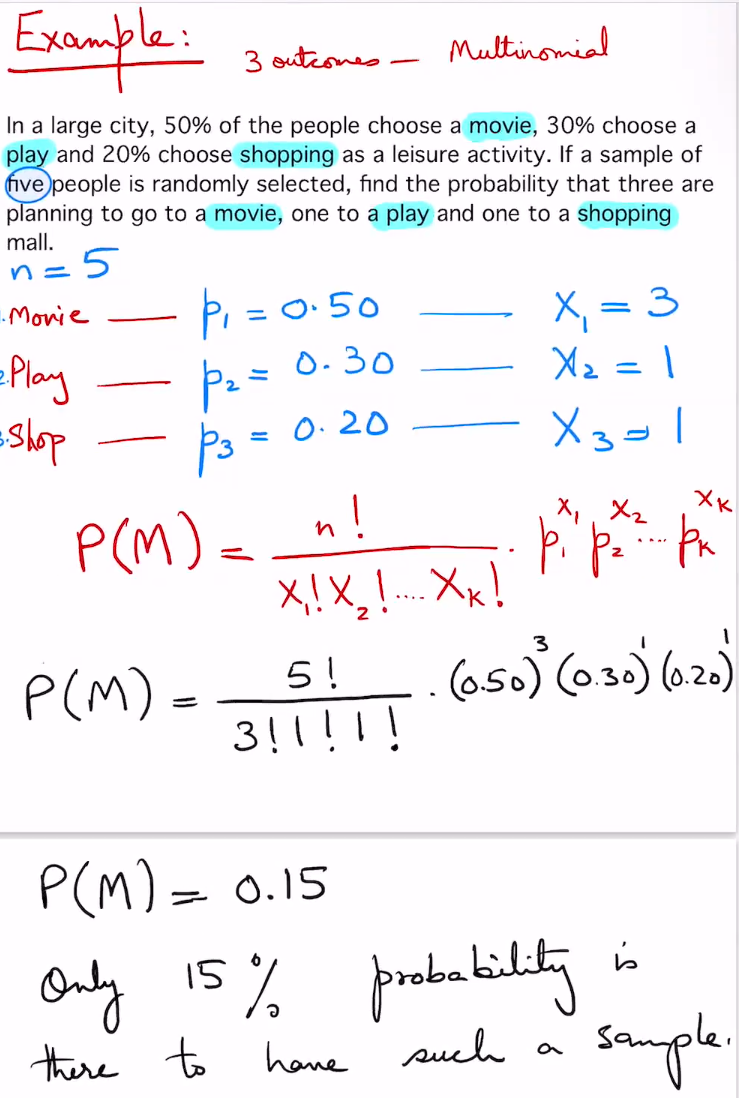 Example:
3 outcomes — Multinomial
In a large city, 50% of the people choose a movie, 30% choose a
play and 20% choose shopping as a leisure activity. If a sample of
five people is randomly selected, find the probability that three are
planning to go to a movie, one to a play and one to a shopping
mall.
n = 5
1. Movie — p₁ = 0.50 — X₁ = 3
2. Play — p₂ = 0.30 — X₂ = 1
3. Shop — p₃ = 0.20 — X₃ = 1
P(M) = n! / X₁! X₂! .... Xₖ! . p₁^X₁ p₂^X₂ .... pₖ^Xₖ
P(M) = 5! / 3! 1! 1! . (0.50)³ (0.30)¹ (0.20)¹
P(M) = 0.15
Only 15 % probability is
there to have such a sample.